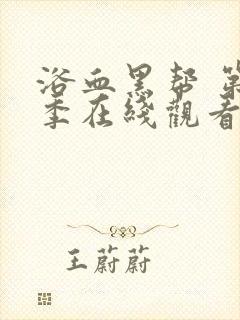 浴血黑帮 第
季在线觀看
王蔚蔚